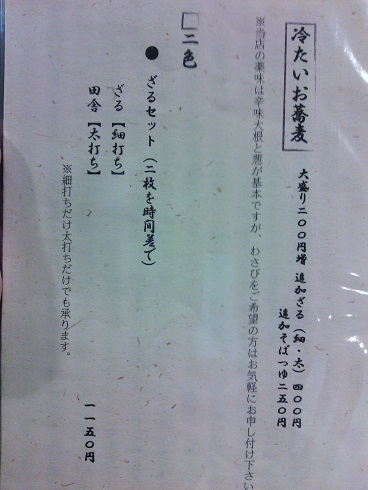 冷たいお蕎麦
大盛り二〇〇円増 追加ざる（細・太）四〇〇円
追加そばつゆ二五〇円
※当店の薬味は辛味大根と葱が基本ですが、わさびをご希望の方はお気軽にお申し付け下さい
□二色
● ざるセット（二枚を時間差で）
ざる【細打ち】
田舎【太打ち】
一一五〇円
※細打ちだけ太打ちだけでも承ります。